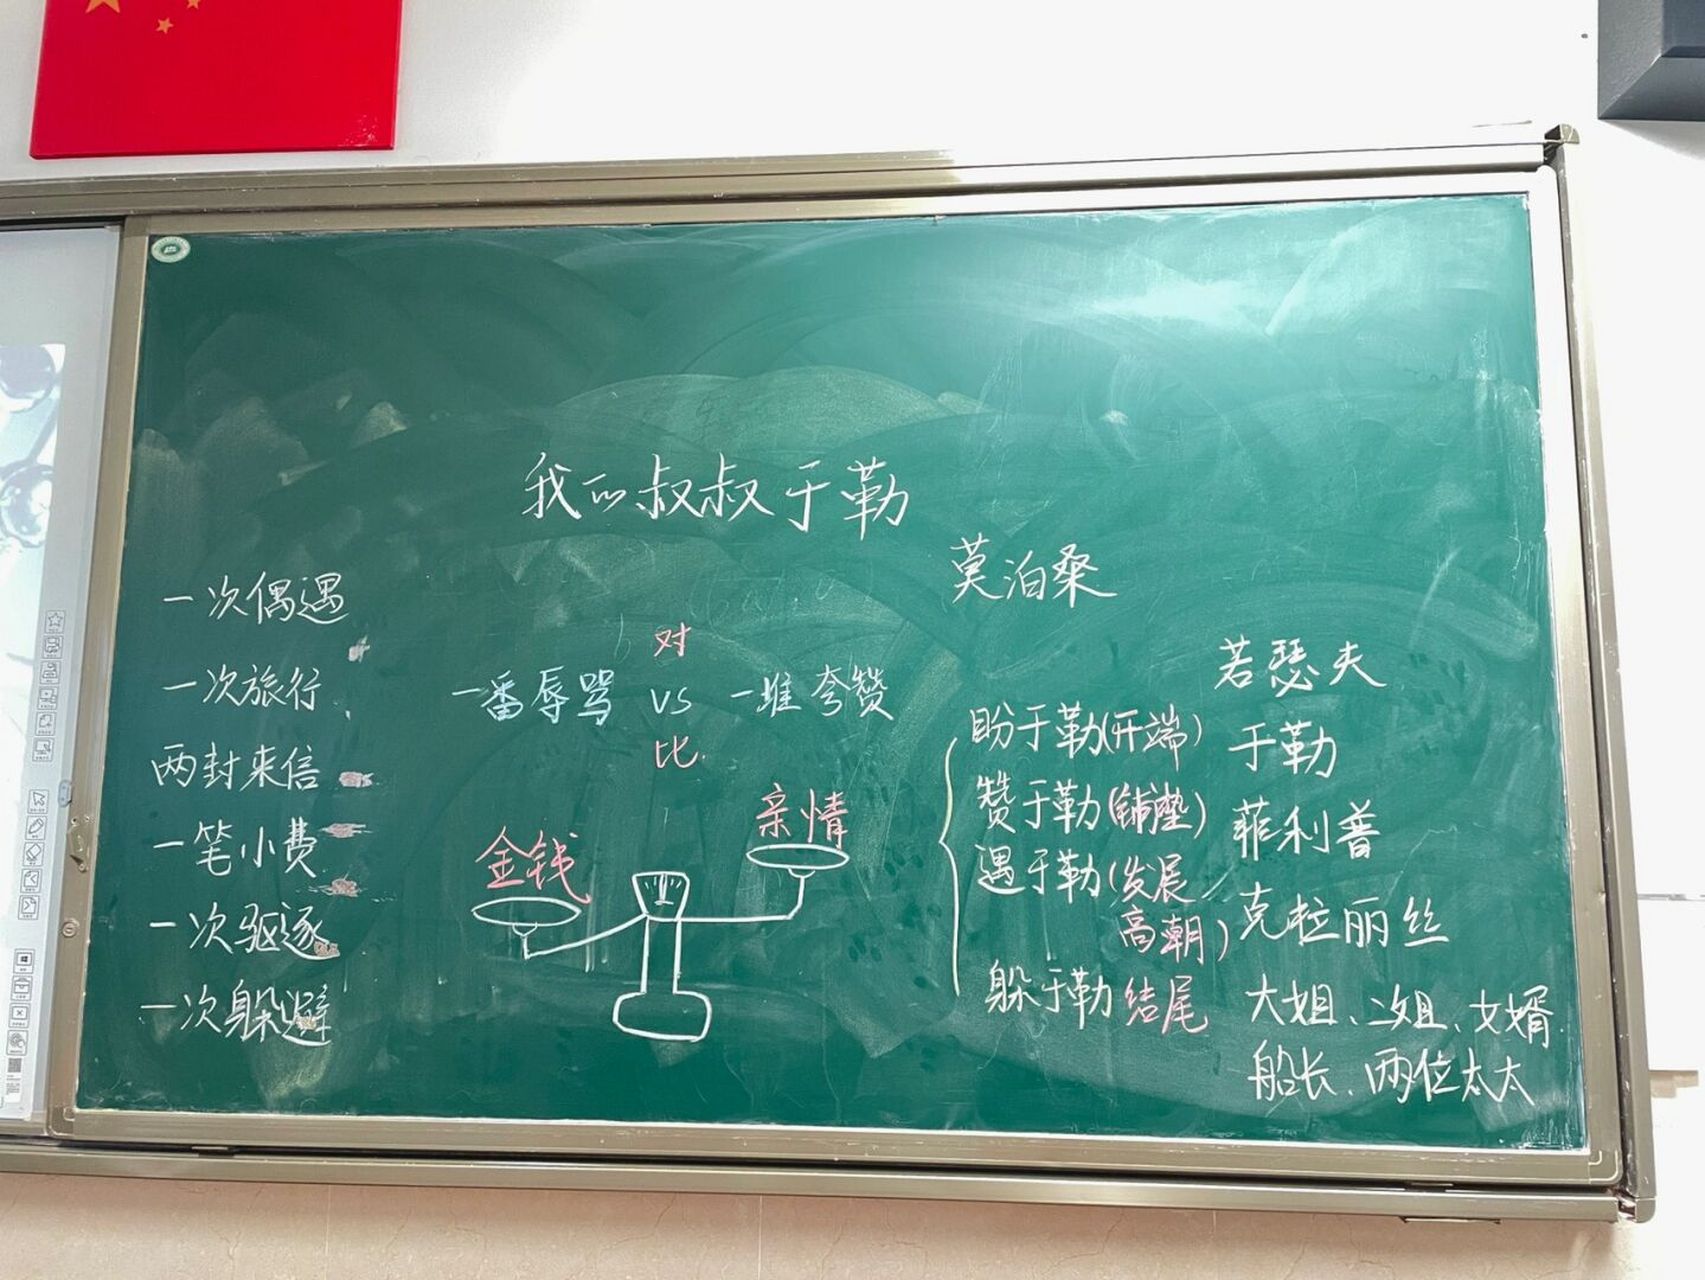 我的叔叔于勒
莫泊桑
一次偶遇
一次旅行
两封来信
一笔小费
一次驱逐
一次躲避
对
一番辱骂 VS 一堆夸赞
比
金钱
亲情
盼于勒(开端)
赞于勒(铺垫)
遇于勒(发展
高潮)
躲于勒 结尾
若瑟夫
于勒
菲利普
克拉丽丝
大姐、二姐、女婿
船长、两位太太